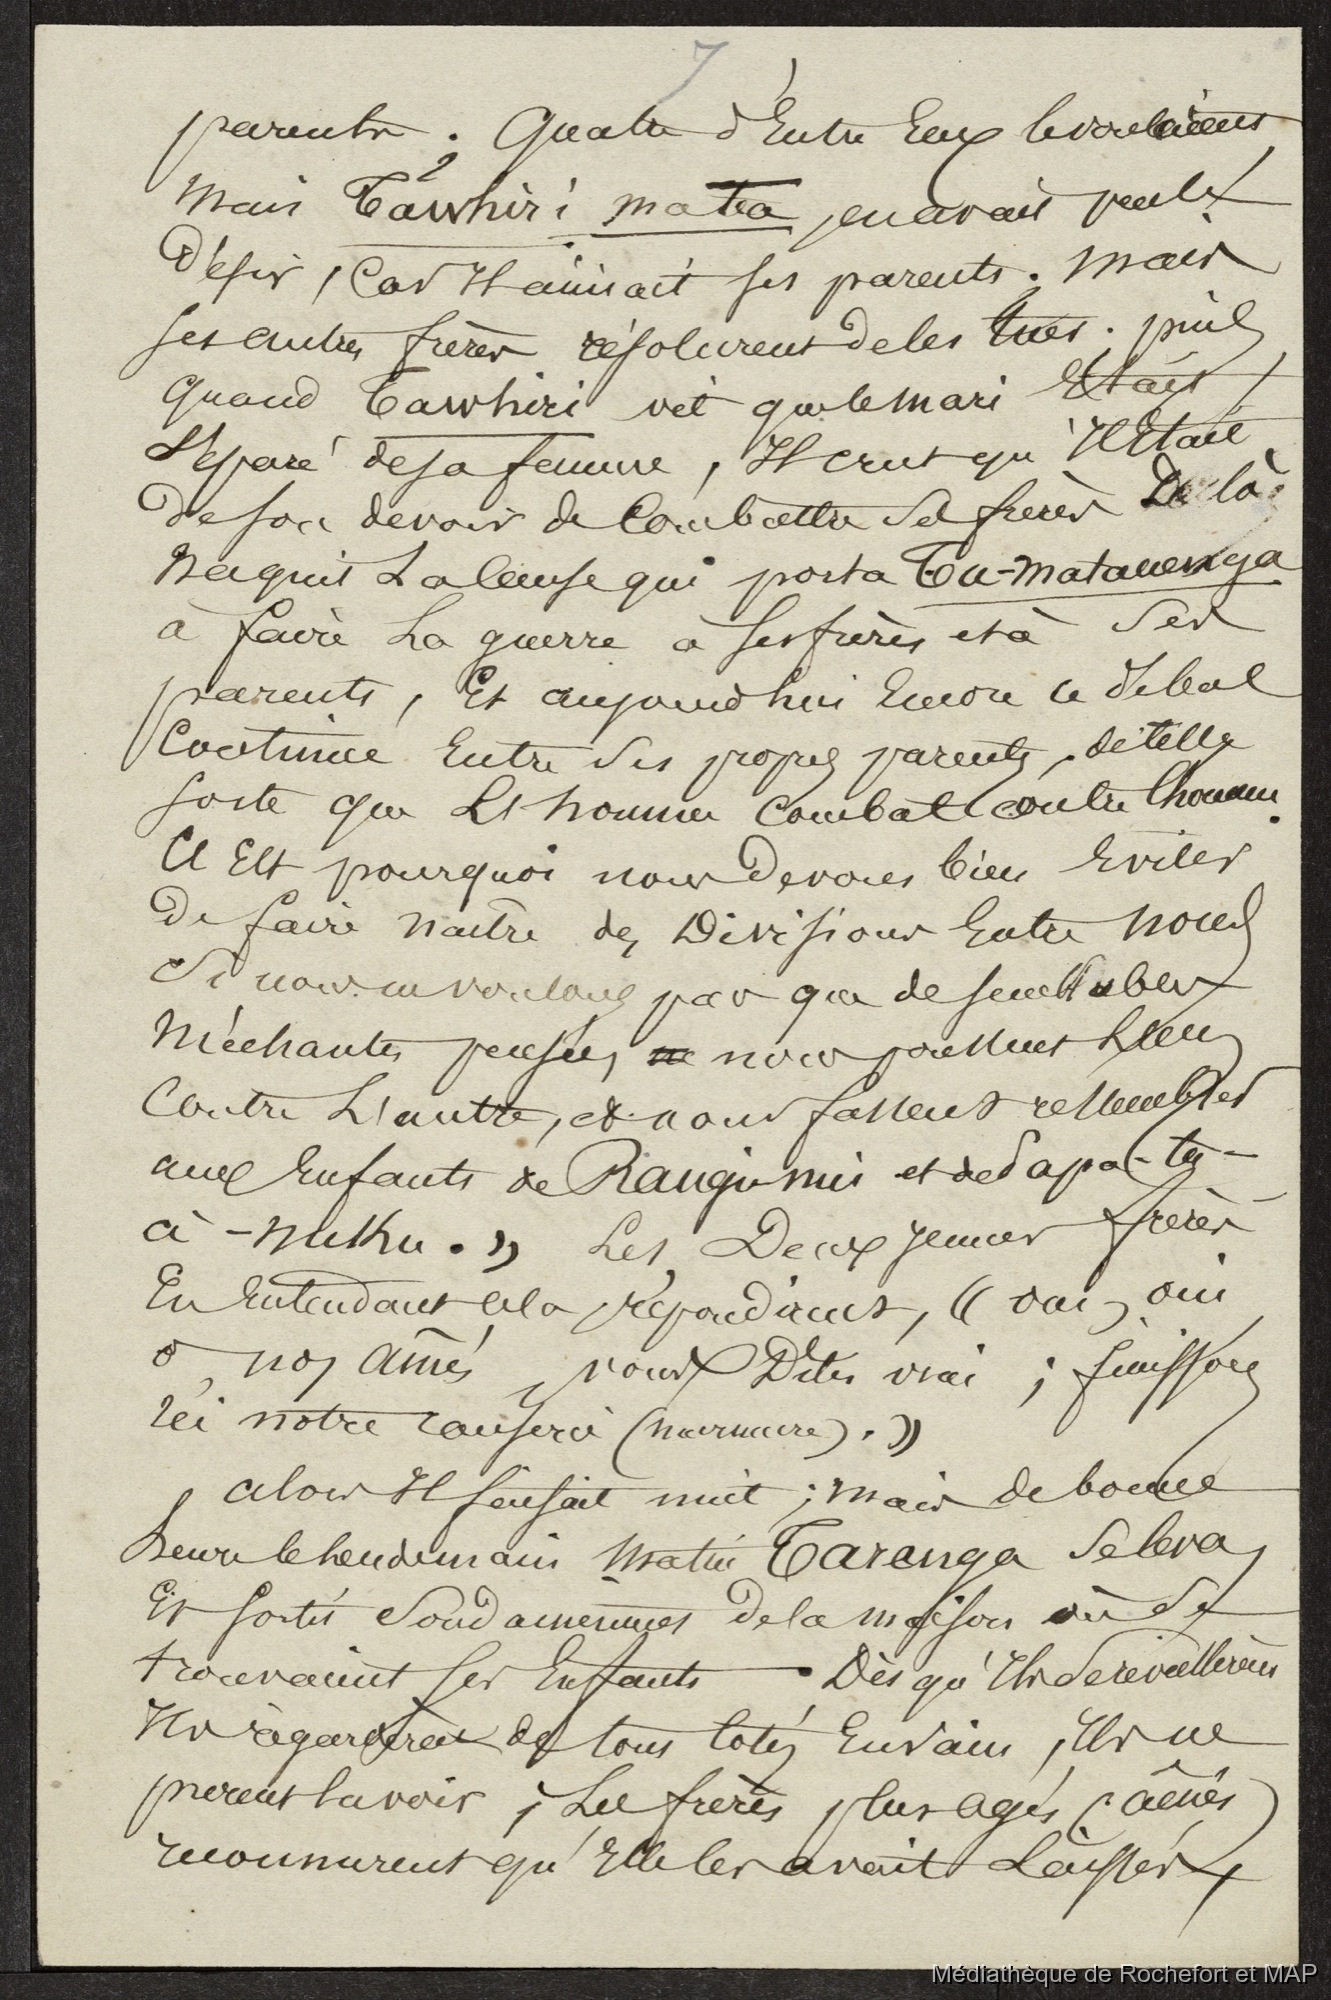 7
parents ; Quatre d'Entre Eux le voulaient
Mais Tawhiri matea en avait peu le
Désir, Car Il aimait ses parents. Mais
ses autres frères résolurent de les tuer. puis
Quand Tawhiri vit que le mari Etait
Séparé de sa femme, Il crut qu'Il Etait
De son devoir de Combattre Ses frères De là
Naquit La cause qui porta Tu-matauenga
à faire La guerre à Ses frères et à Ses
parents, Et aujourd'hui Encore ce débat
Continue Entre Ses propres parents, de telle
sorte que L'homme Combat contre l'homme.
C'Est pourquoi nous Devons bien Eviter
De faire naître des Divisions Entre nous
Si nous ne voulons pas que de semblables
Méchantes pensées nous poussent L'un
Contre L'autre, et nous fassent ressembler
aux Enfants de Rangi-nui et de Papa-tu-
à-nuku. » Les Deux jeunes frères
En Entendant cela répondirent, « oui, oui
ô nos aînés, vous Dites vrai ; finissons
Ici notre causerie (murmure). »
alors Il faisait nuit ; mais de bonne
heure le lendemain matin Taranga Se leva,
Et sortit Soudainement De la maison où Se
trouvaient ses Enfants. Dès qu'Ils Se reveillèrent
Ils regardèrent de tous cotés En vain, Ils ne
purent la voir ; Les frères plus agés (aînés)
reconnurent qu'Elle les avait Laissés,
Médiathèque de Rochefort et MAP